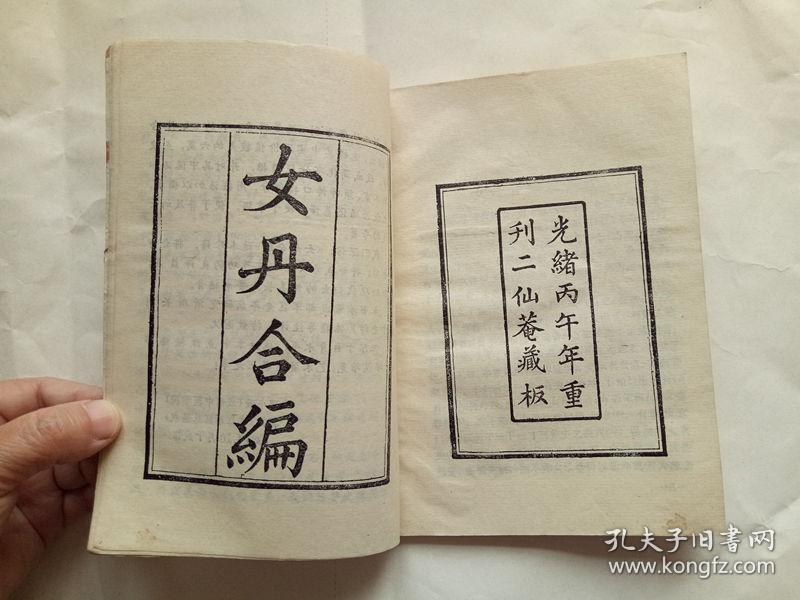 女丹合編
光緒丙午年重
刊二仙菴藏板
孔夫子旧书网
www.kongfz.com